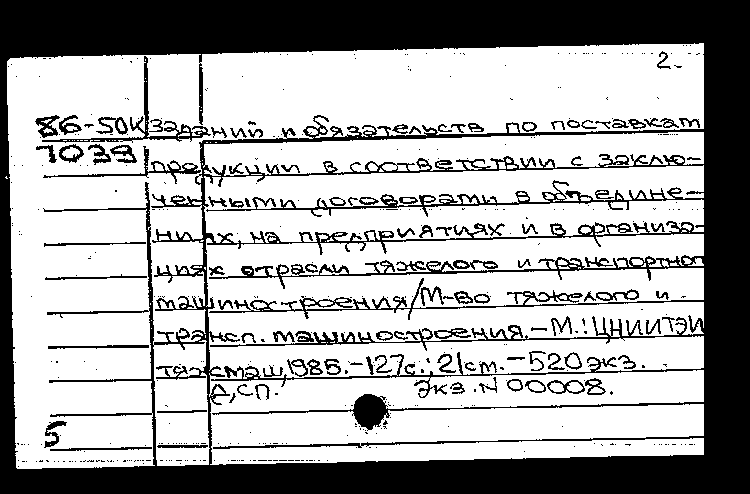 2.
86-50К заданий и обязательств по поставкам
7039 продукции в соответствии с заклю-
ченными договорами в объедине-
ниях, на предприятиях и в организа-
циях отрасли тяжелого и транспортного
машиностроения/М-во тяжелого и
трансп. машиностроения.-М.:ЦНИИТЭИ
тяжмаш,1985.-127с.;21см.-520экз.
Д,СП. Экз.N 00008.
5